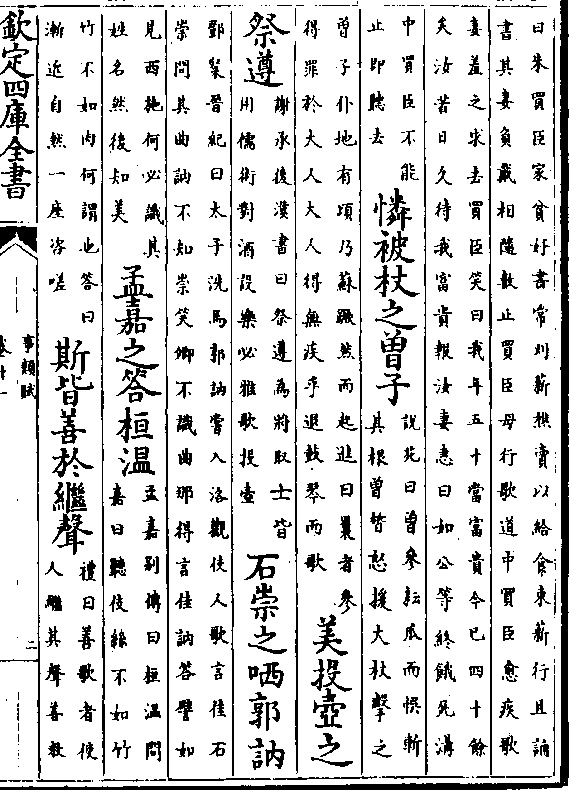 曰朱買臣家貧好書常刈薪樵賣以給食束薪行且誦
書其妻負戴相隨數止買臣毋行歌道中買臣愈疾歌
妻羞之求去買臣笑曰我年五十當富貴今已四十餘
矣汝苦日久待我富貴報汝妻恚曰如公等終餓死溝
中買臣不能
止即聽去
憐被杖之曾子
說苑曰曾參耘瓜而悞斬
其根曾晳怒援大杖擊之
曾子仆地有頃乃蘇蹶然而起進曰曩者參
得罪於大人大人得無疾乎退鼓琴而歌
美投壺之
祭遵
謝承後漢書曰祭遵為將取士皆
用儒術對酒設樂必雅歌投壺
石崇之哂郭訥
鄧粲晉紀曰太子洗馬郭訥嘗入洛觀伎人歌言佳石
崇問其曲訥不知崇笑卿不識曲那得言佳訥答譬如
見西施何必識其
姓名然後知美
孟嘉之答桓温
孟嘉别傳曰桓温問
嘉曰聽伎絲不如竹
竹不如肉何謂也答曰
漸近自然一座咨嗟
斯皆善於繼聲
禮曰善歌者使
人繼其聲善教
欽定四庫全書
事類賦
卷十一
二